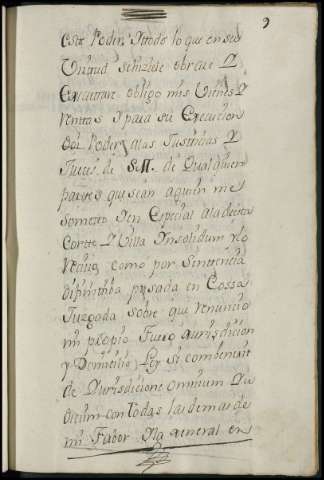 9
este Poder, atodo lo que en su
Virtud se hiziere obrare Y
Executare obligo mis Vienes Y
Rentas I para su Execucion
Doi Poder, alas Justicias Y
Jueces de S.M. de qualquier
partes que sean aquien me
someto Y en Especial ala de esta
Cortte Y Villa Insolidum Rlo
Recivo como por Sentencia
difinitiba pasada en Cossa
Juzgada sobre que renuncio
mi propio Fuero Jurisdicion
y Domicilio, Ley Si combenerit
de Jurisdicione omnium Ju
dicum con todas las demas de
mi Fabor Y la general en